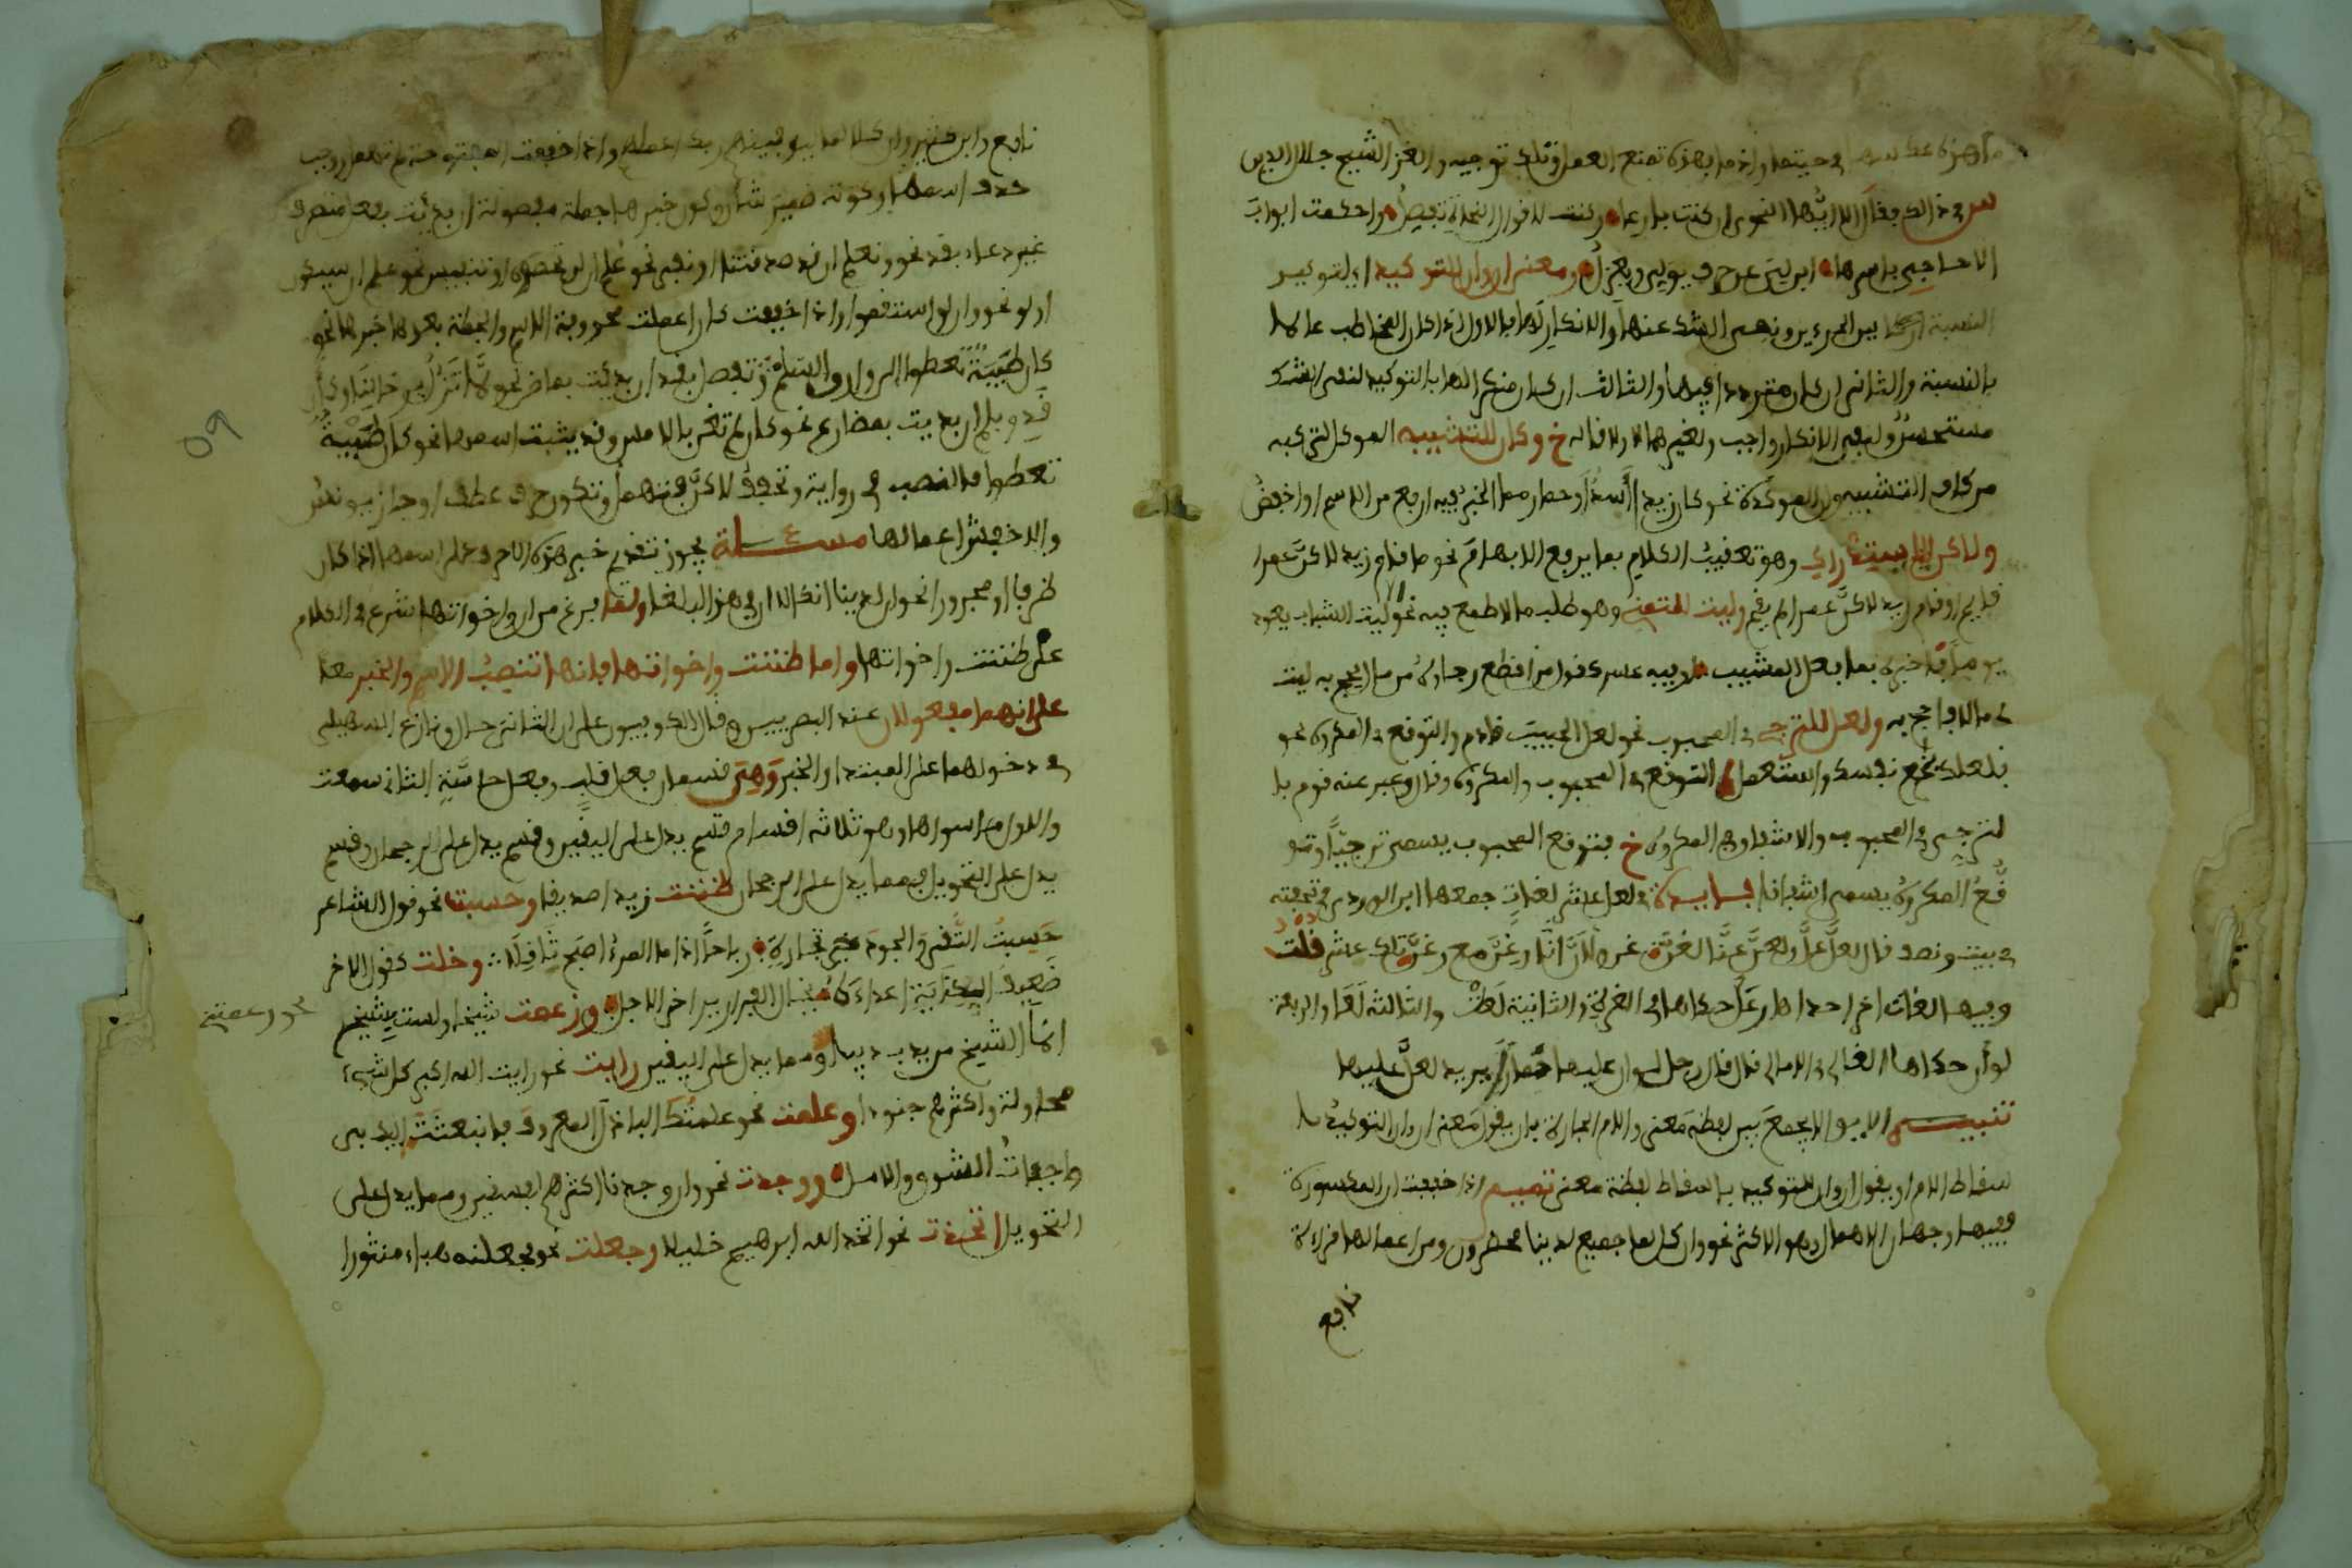 س في ذلك فقال الا ايها النحوي ان كنت بارعا وكنت لاقوال النحاة تفصل واحكمت ابواب
الاحاجي باسرها ابن لي عن حرف يولي ويعزل ومعنى ان وان للتوكيد اي لتوكيد
النسبة بين الجزءين ونفي الشك عنها والانكار لها بالاول اذا كان المخاطب عالما
بالنسبة والثاني ان كان مترددا فيها والثالث ان كان منكرا لها بالتوكيد لنفي الشك
مستحسن ولنفي الانكار واجب ولغيرهما لا ولا قاله خ وكان للتشبيه الموكد لتركبه
من كاف التشبيه وان الموكدة نحو كان زيدا أسد أو حمار مما الخبر فيه ارفع من الاسم او اخفض
ولاكن للاستدراك وهو تعقيب الكلام بما يرفع الابهام نحو ما قام زيد لاكن عمرا
قايم او قام زيد لاكن عمرا لم يقم وليت للتمني وهو طلب ما لا طمع فيه نحو ليت الشباب يعود
يوما فاخبره بما فعل المشيب او فيه عسر كقول منقطع رجاؤه من مال يحج به ليت
لي مالا فاحج به ولعل للترجي في المحبوب نحو لعل الحبيب قادم والتوقع في المكروه نحو
فلعلك بخع نفسك واستعمل التوقع في المحبوب والمكروه وعبر عنه قوم با
لترجي في المحبوب والاشفاق في المكروه خ فتوقع المحبوب يسمى ترجيا وتو
قع المكروه يسمى اشفاقا فايدة في لعل عشر لغات جمعها ابن الوردي في تحفته
في بيت ونصف فقال لعل عل ولعن عنا لغن غن ولأن انا ورغن مع رعن تلك عشر قلت
وفيها لغات اخر احداها رعل حكاها في الغرة والثانية لعلت والثالثة لغا والرابعة
لوأن حكاها القالي في الامالي قال قال رجل لوان عليها خمارا يريد لعل عليها
تنبيه الا يجمع بين لفظة معنى واللام الجارة بان يقول معنى ان وان التوكيد با
سقاط اللام او يقول ان وان للتوكيد باسقاط لفظة معنى تتميم اذا خففت ان المكسورة
ففيها وجهان الاهمال وهو الاكثر نحو وان كل لما جميع لدينا محضرون ومن اعمالها قراءة
نافع
نافع وابن كثير وان كلا لما ليوفينهم ربك اعملهم واذا خففت المفتوحة لم تهمل ووجب
حذف اسمها وكونه ضمير شأن وكون خبرها جملة مفصولة ان بدئت بفعل متصرف
غير دعاء بقد نحو ونعلم ان قد صدقتنا او نفي نحو علم ان لن تحصوه او تنفيس نحو علم ان سيكون
او لو نحو وان لو استقموا واذا خففت كان اعملت محذوفة الاسم والجملة بعدها خبرها نحو
كان ظبية تعطوا الى وارق السلم وتفصل بقد ان بدئت بماض نحو لما تزل برحالنا وكأن
قد وبلم ان بديت بمضارع نحو كان لم تغن بالامس وقد يثبت اسمها نحو كان ظبية
تعطوا بالنصب في رواية وتخفف لاكن فتهمل وتكون حرف عطف وجاز يونس
والاخفش اعمالها مسئلة يجوز تقديم خبر هذه الاحرف على اسمها اذا كان
ظرفا او مجرورا نحو ان لدينا انكالا ان في هذا لبلغا ولما فرغ من ان واخواتها شرع في الكلام
على ظننت واخواتها واما ظننت واخواتها فانها تنصب الاسم والخبر معا
على انهما مفعولان عند البصريين وقال الكوفيون على ان الثاني حال ونازع السهيلي
في دخولهما على المبتدا والخبر وهي قسمان فعل قلب وفعل حاسة الثاني سمعت
والاول ما سواها وهو ثلاثة اقسام قسم يدل على اليقين وقسم يدل على الرجحان وقسم
يدل على التحويل فمما يدل على الرجحان ظننت زيدا صديقا وحسبت نحو قول الشاعر
حسبت التقى والجود خير تجارة رباحا اذا ما المرء اصبح ثاقلا وخلت كقول الاخر
ضعيف النكاية اعداءه يخال الفرار يراخ الاجل وزعمت شيخا ولست بشيخ
انما الشيخ من يدب دبيبا ومما يدل على اليقين رايت نحو رايت الله اكبر كل شيء
محاولة واكثرهم جنودا وعلمت نحو علمتك الباذل المعروف فانبعثت اليك بي
واجفات الشوق والامل ووجدت نحو وان وجدنا اكثرهم لفسقين ومما يدل على
التحويل اتخذت نحو اتخذ الله ابرهيم خليلا وجعلت نحو فجعلنه هباء منثورا